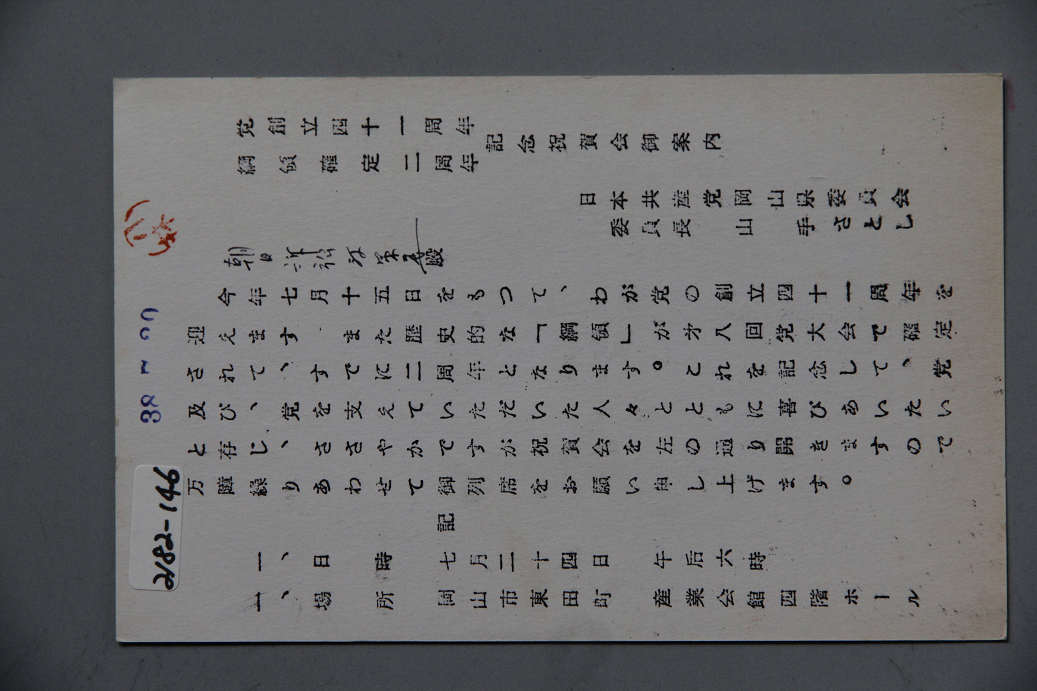 党創立四十一周年
綱領確定二周年
記念祝賀会御案内
日本共産党岡山県委員会
委員長 山手さとし
朝日 殿
今年七月十五日をもつて、わが党の創立四十一周年を
迎えます。また歴史的な「綱領」が才八回党大会で確定
されて、すでに二周年となります。これを記念して、党
及び、党を支えていただいた人々とともに喜びあいたい
と存じ、ささやかですが祝賀会を左の通り開きますので
万障繰りあわせて御列席をお願い申し上げます。
記
一、日時 七月二十四日 午后六時
一、場所 岡山市東田町 産業会館四階ホール
38
2182-146